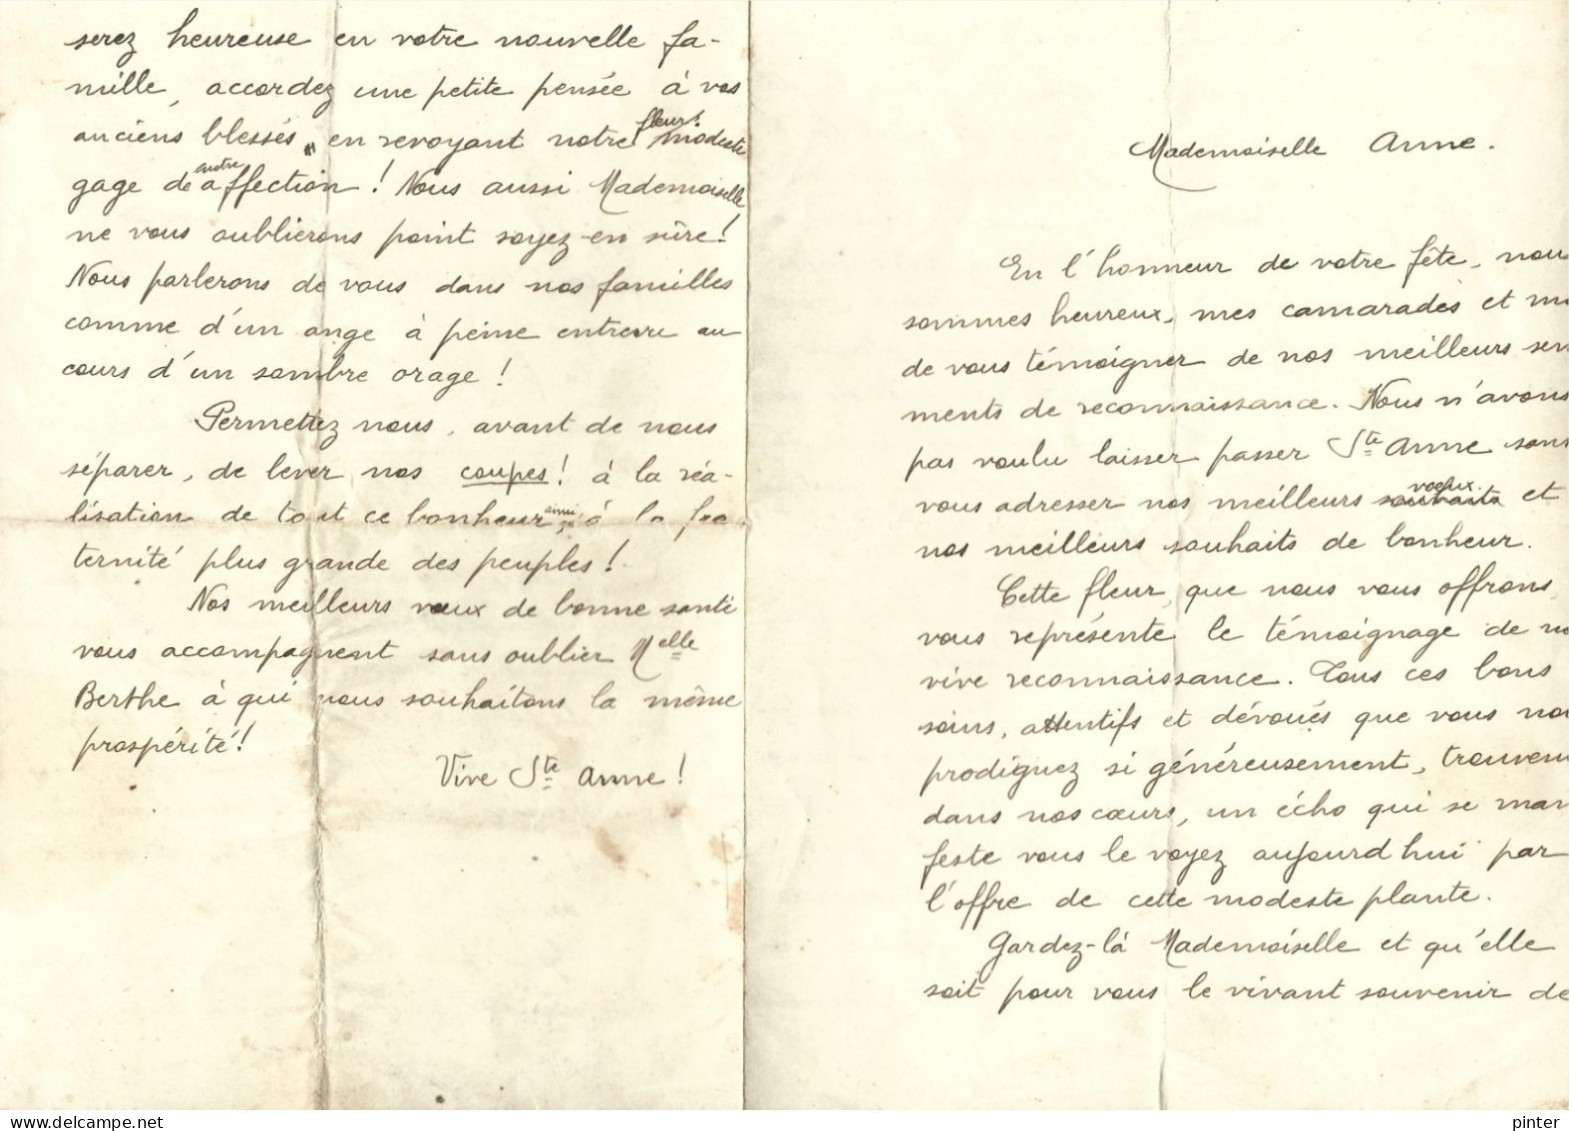 serez heureuse en votre nouvelle fa-
mille, accordez une petite pensée à vos
anciens blessés, en revoyant notre fleur! modeste
gage de notre affection! Nous aussi Mademoiselle
ne vous oublierons point soyez-en sûre!
Nous parlerons de vous dans nos familles
comme d'un ange à peine entrevu au
cours d'un sombre orage!
Permettez nous, avant de nous
séparer, de lever nos coupes! à la réa-
lisation de tout ce bonheur, ainsi à la fra
ternité plus grande des peuples!
Nos meilleurs vœux de bonne santé
vous accompagnent sans oublier Melle
Berthe à qui nous souhaitons la même
prospérité!
Vive Ste Anne!
Mademoiselle Anne.
En l'honneur de votre fête, nou
sommes heureux, mes camarades et m
de vous témoigner de nos meilleurs sen
ments de reconnaissance. Nous n'avons
pas voulu laisser passer Ste Anne sans
vous adresser nos meilleurs souhaits vœux et
nos meilleurs souhaits de bonheur.
Cette fleur, que nous vous offrons,
vous représente le témoignage de no
vive reconnaissance. Tous ces bons
soins, attentifs et dévoués que vous no
prodiguez si généreusement, trouvent
dans nos cœurs, un écho qui se man
feste vous le voyez aujourd hui par
l'offre de cette modeste plante.
Gardez-là Mademoiselle et qu'elle
soit pour vous le vivant souvenir de
delcampe.com
pinter